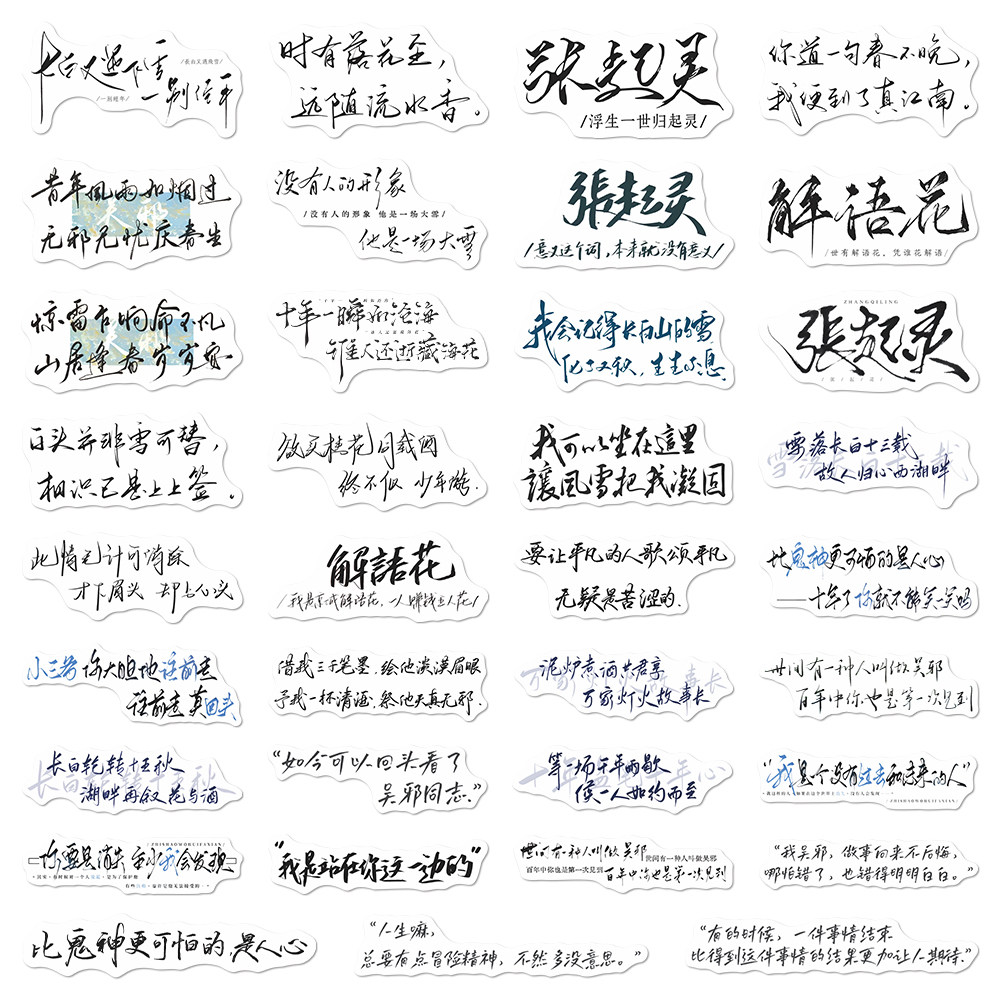 长白又遇下雪
/长白又遇微雪/
/一别经年/
一别经年
时有落花至，
远随流水香。
张起灵
/浮生一世归起灵/
你道一句春不晚，
我便到了真江南。
青年风雨如烟过
无邪无忧庆春生
没有人的形象
/没有人的形象 他是一场大雪/
他是一场大雪
張起灵
/意义这个词，本来就没有意义/
解语花
/世有解语花，凭谁花解语/
惊雷乍响命不凡
山居逢春岁岁安
十年一瞬的沧海
谁人还逝藏海花
我会记得长白山的雪
化于又秋，生生不息
ZHANGQILING
張起灵
/张/起/灵/
白头并非雪可替，
相识已是上上签。
欲买桂花同载酒
终不似 少年游.
我可以坐在這里
讓風雪把我凝固
雪落长白十三载
故人归心西湖畔
此情无计可消除
才下眉头 却上心头
解語花
要让平凡的人歌颂平凡
无疑是苦涩的.
比鬼神更可怕的是人心
——十年了你就不能笑一笑吗
小三爷你大胆地往前走
往前走莫回头
借我三千笔墨.绘他淡漠眉眼
予我一杯清酒.祭他天真无邪.
泥炉煮酒共君享
万家灯火故事长
世间有一种人叫做吴邪
百年中你也是第一次见到
长白轮转十五秋
湖畔再叙花与酒
“如今可以回头看了
吴邪同志.”
等一场千年雨歇
候一人如约而至
“我是个没有过去和未来的人”
你要是消失 至少我会发现
ZHISHAOWOHUIFAXIAN
“我是站在你这一边的”
世间有一种人叫做吴邪
世间有一种人叫做吴邪
百年中你也是第一次见到
百年中你也是第一次见到
“我吴邪，做事向来不后悔，
哪怕错了，也错得明明白白。”
比鬼神更可怕的.是人心
“人生嘛，
总要有点冒险精神，不然多没意思。”
“有的时候，一件事情结束
比得到这件事情的结果更加让人期待.”